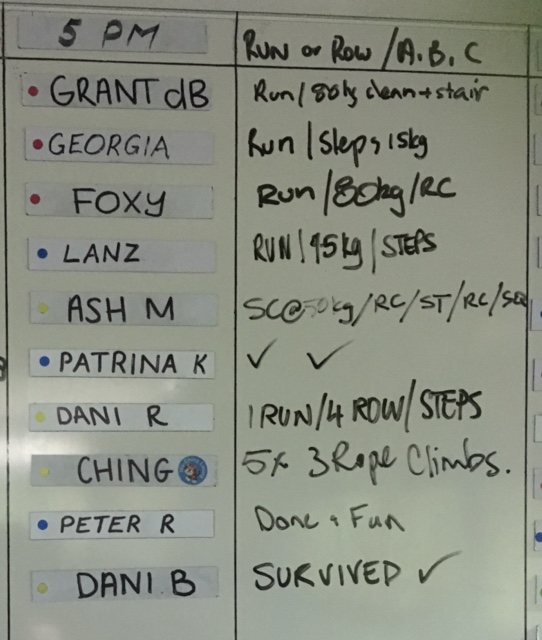 5 PM RUN or ROW / A.B.C
GRANT dB Run / 80kg clean + stair
GEORGIA Run / Steps 15kg
FOXY Run / 80kg / RC
LANZ RUN / 45kg / STEPS
ASH M SC@50kg / RC / ST / RC /
PATRINA K ✓ ✓
DANI R 1 RUN / 4 ROW / STEPS
CHING 5x 3 Rope Climbs.
PETER R Done + Fun
DANI.B SURVIVED ✓